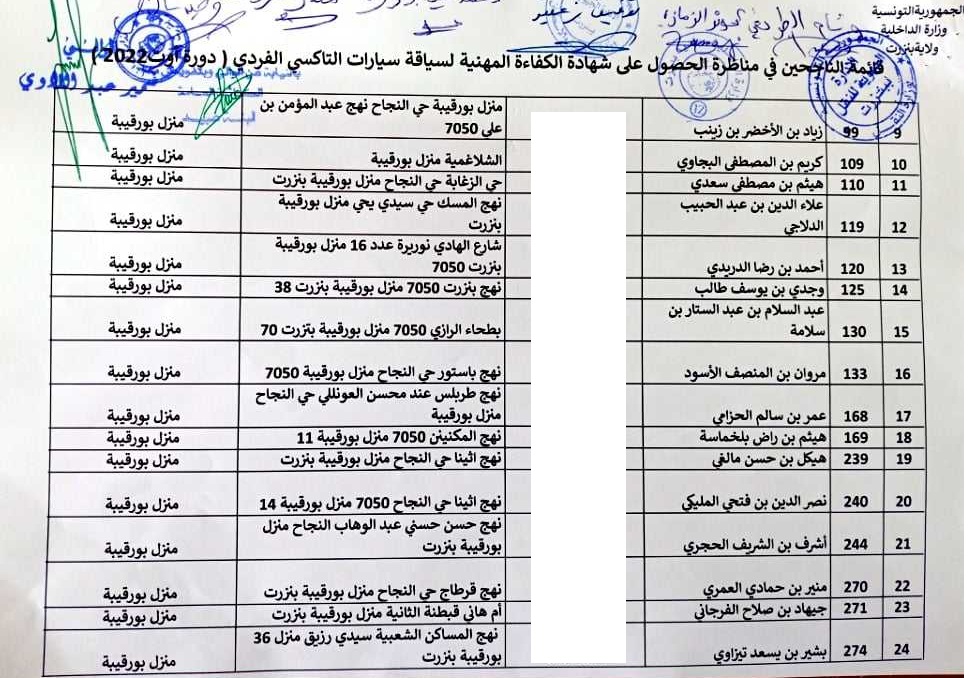 الجمهورية التونسية
وزارة الداخلية
ولاية بنزرت
قائمة الناجحين في مناظرة الحصول على شهادة الكفاءة المهنية لسياقة سيارات التاكسي الفردي ( دورة أوت 2022 )
9 99 زياد بن الأخضر بن زينب منزل بورقيبة حي النجاح نهج عبد المؤمن بن على 7050 منزل بورقيبة
10 109 كريم بن المصطفى البجاوي الشلاغمية منزل بورقيبة منزل بورقيبة
11 110 هيثم بن مصطفى سعدي حي الزغابة حي النجاح منزل بورقيبة بنزرت منزل بورقيبة
12 119 علاء الدين بن عبد الحبيب الدلاجي نهج المسك حي سيدي يحي منزل بورقيبة بنزرت منزل بورقيبة
13 120 أحمد بن رضا الدريدي شارع الهادي نوريرة عدد 16 منزل بورقيبة بنزرت 7050 منزل بورقيبة
14 125 وجدي بن يوسف طالب نهج بنزرت 7050 منزل بورقيبة بنزرت 38 منزل بورقيبة
15 130 عبد السلام بن عبد الستار بن سلامة بطحاء الرازي 7050 منزل بورقيبة بنزرت 70 منزل بورقيبة
16 133 مروان بن المنصف الأسود نهج باستور حي النجاح منزل بورقيبة 7050 منزل بورقيبة
17 168 عمر بن سالم الحزامي نهج طربلس عند محسن العونللي حي النجاح منزل بورقيبة منزل بورقيبة
18 169 هيثم بن راض بلخماسة نهج المكنينن 7050 منزل بورقيبة 11 منزل بورقيبة
19 239 هيكل بن حسن مالقي نهج اثينا حي النجاح منزل بورقيبة بنزرت منزل بورقيبة
20 240 نصر الدين بن فتحي المليكي نهج اثينا حي النجاح 7050 منزل بورقيبة 14 منزل بورقيبة
21 244 أشرف بن الشريف الحجري نهج حسن حسني عبد الوهاب النجاح منزل بورقيبة بنزرت منزل بورقيبة
22 270 منير بن حمادي العمري نهج قرطاج حي النجاح منزل بورقيبة بنزرت منزل بورقيبة
23 271 جيهاد بن صلاح الفرجاني أم هاني قبطنة الثانية منزل بورقيبة بنزرت منزل بورقيبة
24 274 بشير بن يسعد تيزاوي نهج المساكن الشعبية سيدي رزيق منزل 36 بورقيبة بنزرت منزل بورقيبة